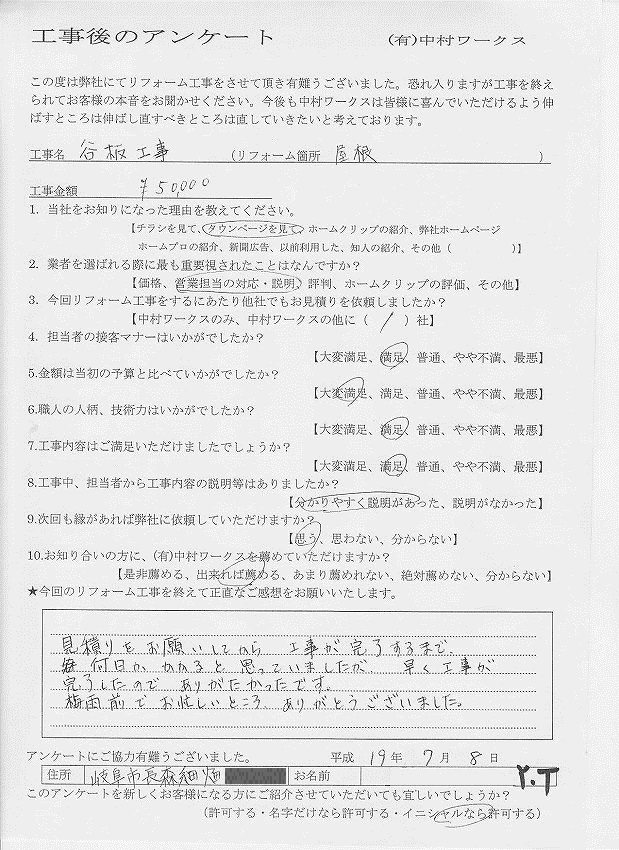 工事後のアンケート　(有)中村ワークス
この度は弊社にてリフォーム工事をさせて頂き有難うございました。恐れ入りますが工事を終え
られてお客様の本音をお聞かせください。今後も中村ワークスは皆様に喜んでいただけるよう伸
ばすところは伸ばし直すべきところは直していきたいと考えております。
工事名　谷板工事　(リフォーム箇所　屋根　)
工事金額　¥50,000
1. 当社をお知りになった理由を教えてください。
【チラシを見て、タウンページを見て、ホームクリップの紹介、弊社ホームページ
ホームプロの紹介、新聞広告、以前利用した、知人の紹介、その他（　　）】
2. 業者を選ばれる際に最も重要視されたことはなんですか？
【価格、営業担当の対応・説明、評判、ホームクリップの評価、その他】
3. 今回リフォーム工事をするにあたり他社でもお見積りを依頼しましたか？
【中村ワークスのみ、中村ワークスの他に（ / ）社】
4. 担当者の接客マナーはいかがでしたか？
【大変満足、満足、普通、やや不満、最悪】
5.金額は当初の予算と比べていかがでしたか？
【大変満足、満足、普通、やや不満、最悪】
6.職人の人柄、技術力はいかがでしたか？
【大変満足、満足、普通、やや不満、最悪】
7.工事内容はご満足いただけましたでしょうか？
【大変満足、満足、普通、やや不満、最悪】
8.工事中、担当者から工事内容の説明等はありましたか？
【分かりやすく説明があった、説明がなかった】
9.次回も縁があれば弊社に依頼していただけますか？
【思う、思わない、分からない】
10.お知り合いの方に、(有)中村ワークスを薦めていただけますか？
【是非薦める、出来れば薦める、あまり薦めれない、絶対薦めない、分からない】
★今回のリフォーム工事を終えて正直なご感想をお願いいたします。
見積りをお願いしてから　工事が完了するまで、
何日か、かかると思っていましたが、早く工事が
完了したので　ありがたかったです。
梅雨前でお忙しいところ、ありがとうございました。
アンケートにご協力有難うございました。　平成　19年　7月　8日
住所　岐阜市長森細畑　お名前　Y.T
このアンケートを新しくお客様になる方にご紹介させていただいても宜しいでしょうか？
（許可する・名字だけなら許可する・イニシャルなら許可する）